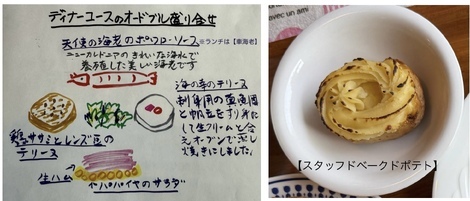 ディナーコースのオードブル盛り合せ
天使の海老のポワロ・ソース ※ランチは【車海老】
ニューカレドニアのきれいな海水で
養殖した美しい海老です
海の幸のテリーヌ
刺身用の真鯛
と帆立をすり身に
して生クリームと合
えオーブンでむし
焼きにしました。
鶏ササミとレンズ豆の
テリーヌ
生ハム
パパイヤのサラダ
avec un ami
【スタッフドベークドポテト】